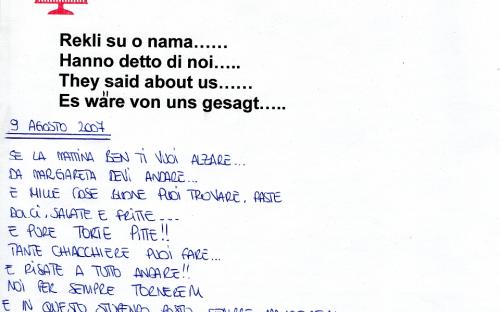 Rekli su o nama......
Hanno detto di noi.....
They said about us......
Es wäre von uns gesagt.....
9 AGOSTO 2007
SE LA MATTINA BEN TI VUOI ALZARE...
DA MARGARETA DEVI ANDARE...
E MILLE COSE BUONE PUOI TROVARE, PASTE
DOLCI, SALATE E FRITTE ---
E PURE TORTE PITTE!!
TANTE CHIACCHIERE PUOI FARE...
E RISATE A TUTTO ANDARE!!
NOI PER SEMPRE TORNEREM
E IN QUESTO STUPENDO POSTO SEMPRE